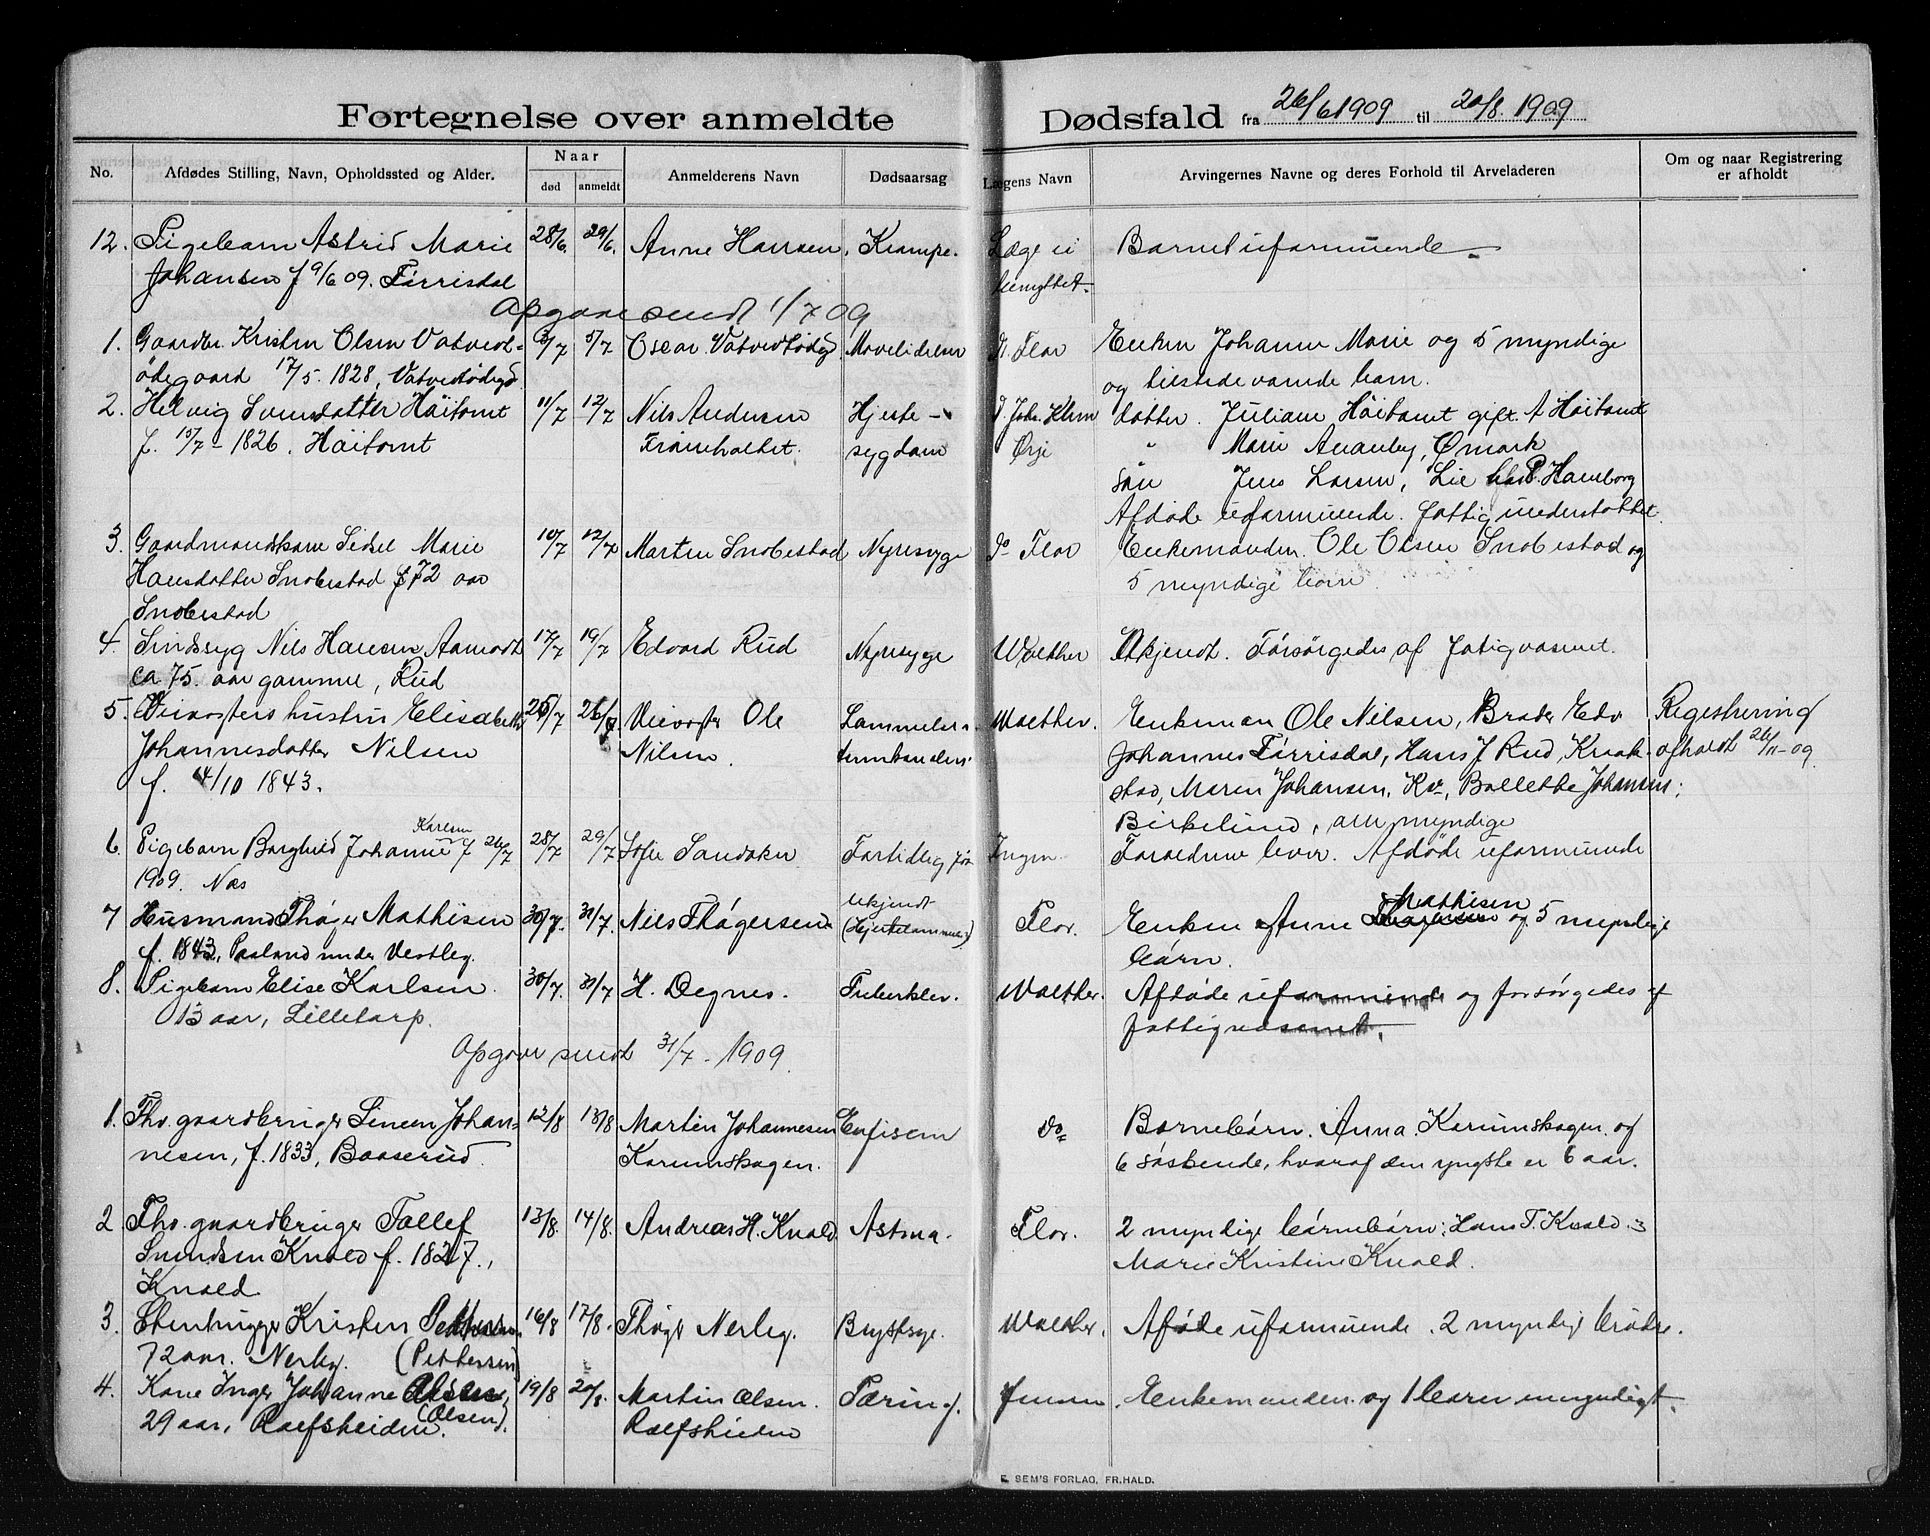 Fortegnelse over anmeldte Dødsfald fra 26/6 1909 til 20/8. 1909
No. Afdødes Stilling, Navn, Opholdssted og Alder. Naar død anmeldt Anmelderens Navn Dødsaarsag Lægens Navn Arvingernes Navne og deres Forhold til Arveladeren Om og naar Registrering er afholdt
12. Pigebarn Astrid Marie 28/6. 29/6. Anne Hansen, Krampe. Læge ei Barnet uformuende.
Johansen f 9/6 09. Törrisdal benyttet.
Opgave sendt 1/7 09
1. Gaardbr. Kristen Olsen Vatvedt- 3/7 5/7 Oscar Vatvedtödegd Dr. Flor Enken Johanne Marie og 5 myndige
ödegaard 17/5. 1828, Vatvedtödegd og tilstedeværende barn.
2. Helvig Svendsdatter Höitomt 11/7 12/7 Nils Andersen Hjerte- D. Johs. Klem datter. Juliane Höitomt gift. A Höitomt
f. 15/7 - 1826. Höitomt sygdom Ørje " Marie Ømark
sön Jens Larsen, Lie
Afdöde uformuende. fattigunderstöttet.
3. Gaardmandskone Sidsel Marie 10/7 12/7 Martin Snobestad Nyresyge Do Flor Enkemanden. Ole Olsen Snobestad og
Hansdatter Snobestad 72 aar 5 myndige barn.
Snobestad
4. Sindssyg Nils Hansen Aamodt 17/7 19/7 Edvard Rud Nyresyge Walther Ukjendt. Försörgedes af fatigvæsenet.
ca 75. aar gammel, Rud
5. Veivogters hustru Elisabeth 25/7 26/7. Veivogter Ole Walther. Enkeman Ole Nilsen, Broder Edv Registrering
Johannesdatter Nilsen Nilsen. Johannes Törrisdal, Hans J Rud, Knak- afholdt 26/11-09.
f. 4/10 1843. stad, Maren Johansen, Ko, Bollette Johansen;
Birkelund, alle myndige
6. Pigebarn Borghild Johanne Karlsen f 26/7 28/7 29/7 Sofie Sandaker Fortidlig fö Forældrene lever. Afdöde uformuende
1909. Næs
7 Husmand Thöger Mathisen 30/7. 31/7. Nils Thögersen ukjendt Flor. Enken Anne Mathisen og 5 myndige
f. 1843, under Vestby. börn.
8. Pigebarn Elise Karlsen. 30/7. 31/7 H. Degnes. Tuberklev. Walther. Afdöde uformuende og forsörgedes af
13 aar, Lilletorp. fattigvæsenet.
Opgave sendt 31/7 - 1909.
1. Fhv. gaardbruger Simen Johan- 12/8 13/8 Martin Johannesen Enfisem do Barnebörn. Anna Karunskogen og
nesen, f. 1833, Baaserud. Karunskogen. 6 söskende, hvoraf den yngste er 6 aar.
2 Fhv. gaardbruger Tollef 13/8. 14/8. Andreas H. Knold Astma. Flor. 2 myndige börnebörn: Hans T. Knold. og
Knold f. 1827., Marie Kristine Knold.
Knold
3. Stenhugger Kristen Pettersen 16/8 17/8. Thöger Nerby. Brystsyge. Walther. Aföde uformuende. 2 myndige brödre.
72 aar. Nerby. (Pettersen)
4. Kone Inger Johanne Olsen, 19/8 20/8. Martin Olsen. Tæring. Jensen Enkemanden og 1 barn umyndigt.
29 aar, Rolfsheiden. (Olsen). Rolfsheiden
E. SEM'S FORLAG, FR.HALD.